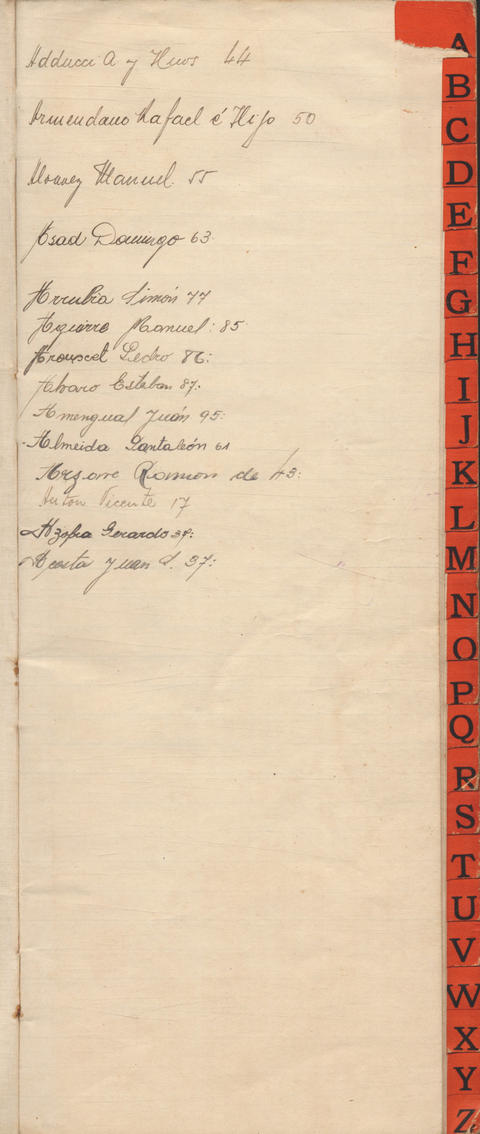 Adducci A y Hnos 44
Armendano Rafael é Hijo 50
Alvarez Manuel. 55
Asad Domingo 63
Arrubia Simón 77
Aguirre Manuel: 85
Pedro 86:
Alvaro Esteban 87.
Amengual Juán 95:
Almeida Pantaleón 61
Ramon de 43:
Anton Vicente 17
Azofra Gerardo 37:
Acosta Juan S. 37:
A
B
C
D
E
F
G
H
I
J
K
L
M
N
O
P
Q
R
S
T
U
V
W
X
Y
Z